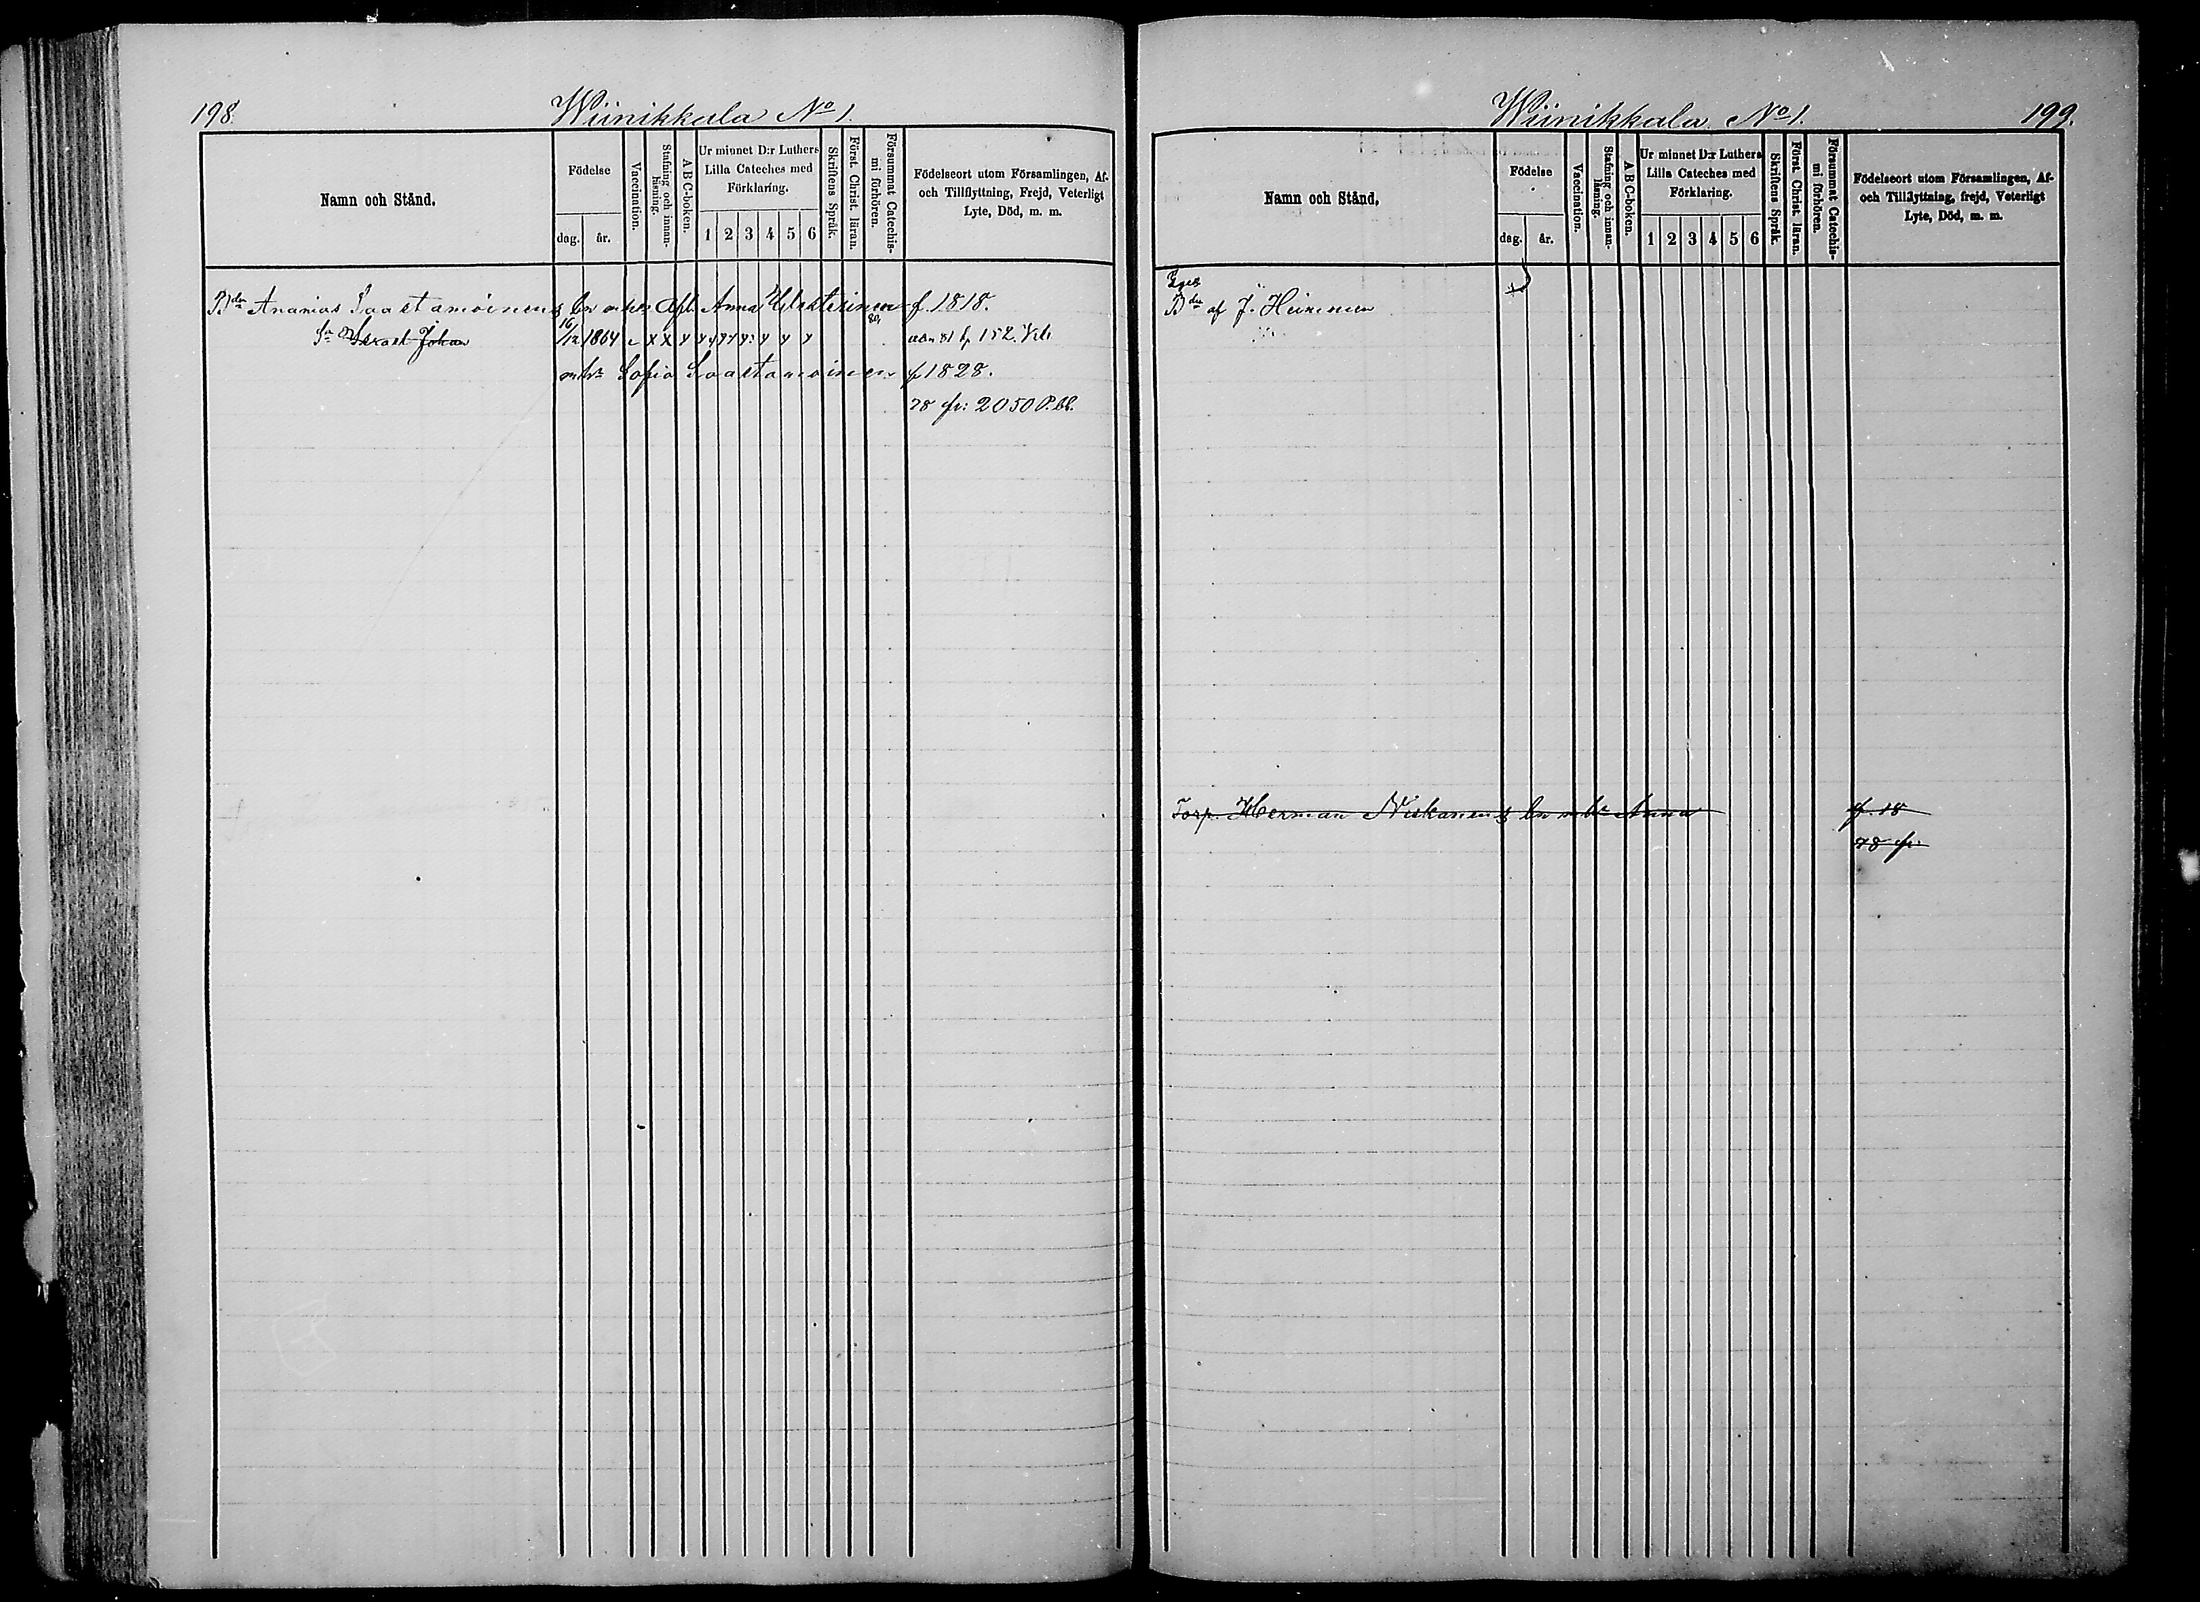 198.
Wiinikkala No 1.
Namn och Stånd.
Födelse
dag.
år.
Vaccination.
Stafning och innan-
läsning.
A B C-boken.
Ur minnet D:r Luthers
Lilla Cateches med
Förklaring.
1 2 3 4 5 6
Skriftens Språk.
Först. Christ. läran.
Försummat Catechis-
mi förhören.
Födelseort utom Församlingen, Af-
och Tillflyttning, Frejd, Veterligt
Lyte, Död, m. m.
Bdn Ananias Saastamoinens Anna f. 1818.
Sn Israel Johan 16/12 1864 x x y y y y y y y 152
Sofia Saastamoinen f 1828.
78 fr: 2050 P.bl.
Wiinikkala No 1.
199.
Namn och Stånd.
Födelse
dag.
år.
Vaccination.
Stafning och innan-
läsning.
A B C-boken.
Ur minnet D:r Luthers
Lilla Cateches med
Förklaring.
1 2 3 4 5 6
Skriftens Språk.
Först. Christ. läran.
Försummat Catechis-
mi förhören.
Födelseort utom Församlingen, Af-
och Tillflyttning, frejd, Veterligt
Lyte, Död, m. m.
Bdn af J. Heinonen
Torp. Herman Niskanens Anna f. 18
78 fr: